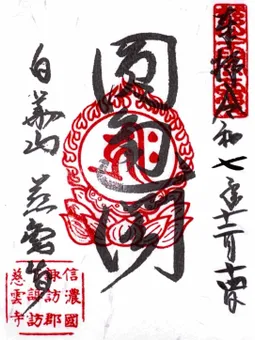 奉拝 令和七年十二月十四日
圓通閣
白華山 慈雲寺
信濃國
諏訪郡
慈雲寺